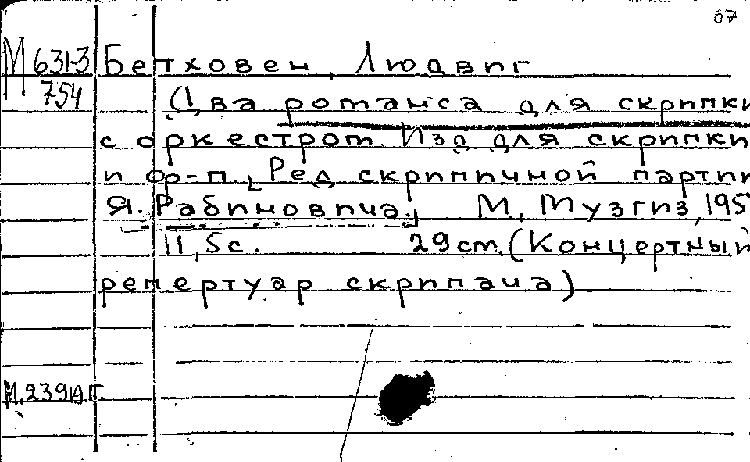 07
М 631-3 Бетховен, Людвиг
754 (Два романса для скрипки
с оркестром. Изд для скрипки
и ф-п., Ред скрипичной партии
Я. Рабиновича.] М, Музгиз, 195
11, 5с. 29 cm. (Концертный
репертуар скрипача)